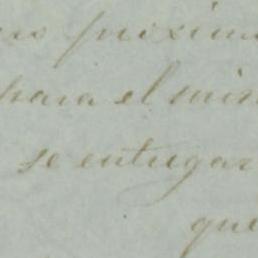 próximo
para el min
se entregar
que